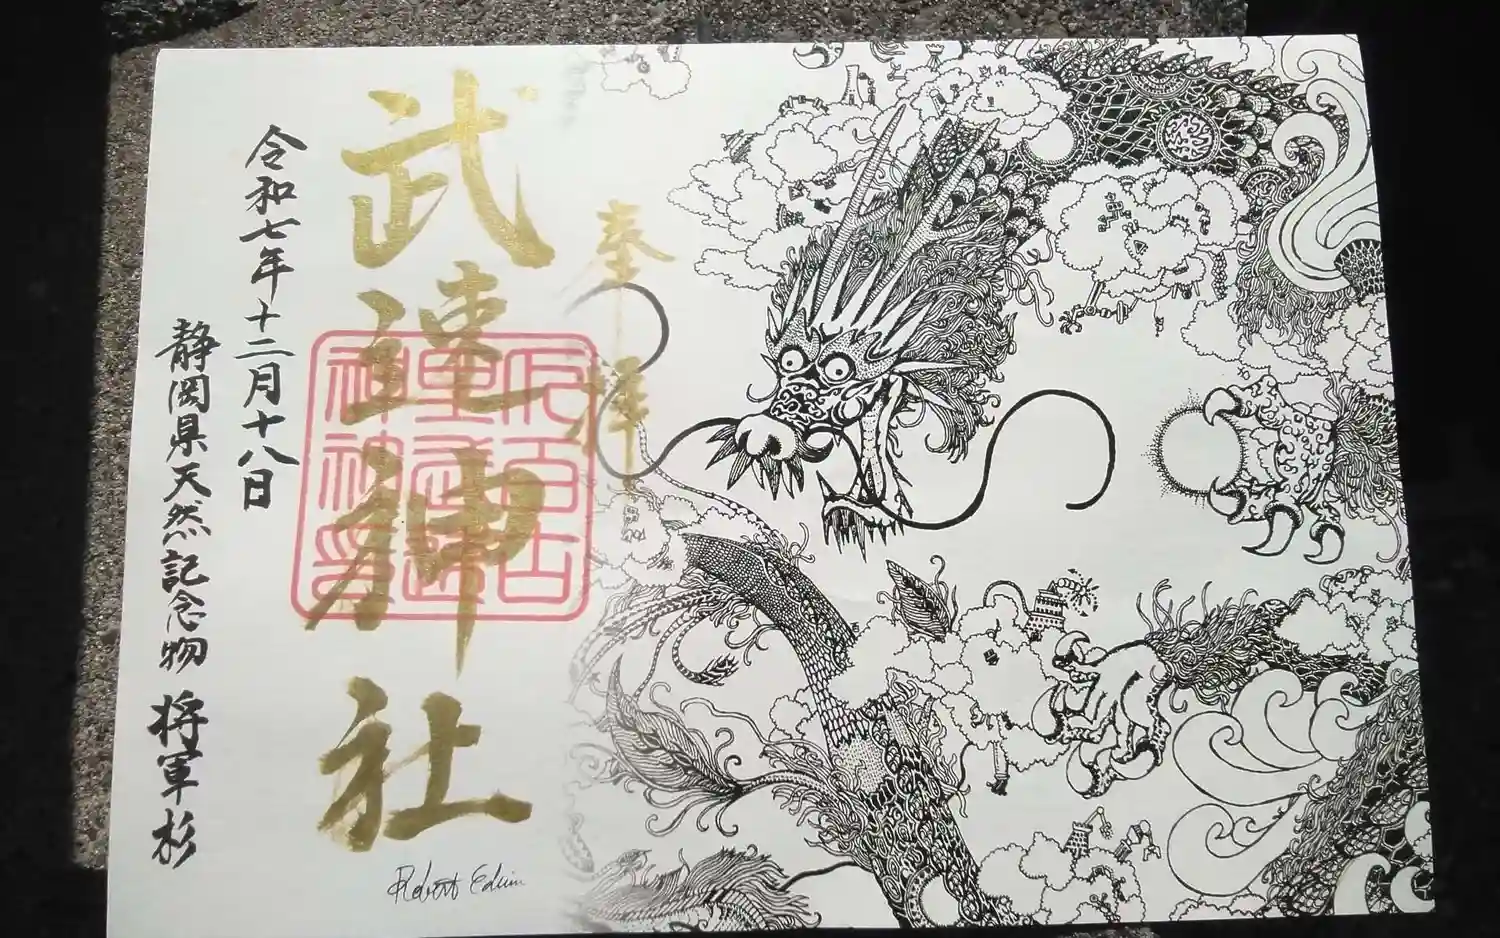 奉拝
武速神社
令和七年十二月十八日
静岡県天然記念物 将軍杉
Robert